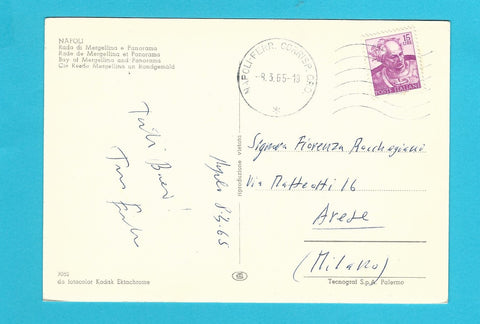 NAPOLI
Rada di Mergellina e Panorama
Rade de Mergellina et Panorama
Bay of Mergellina and Panorama
Die Reede Mergellina un Rundgemäld
NAPOLI FERR. CORRISP.
-8.3.65-19
15
POSTE ITALIANE
Tanti Baci!
Napoli 8.3.65
riproduzione vietata
Signora Fiorenza
Via Matteotti 16
Arese
(Milano)
da fotocolor Kodak Ektachrome
Tecnograf S.p.A. Palermo